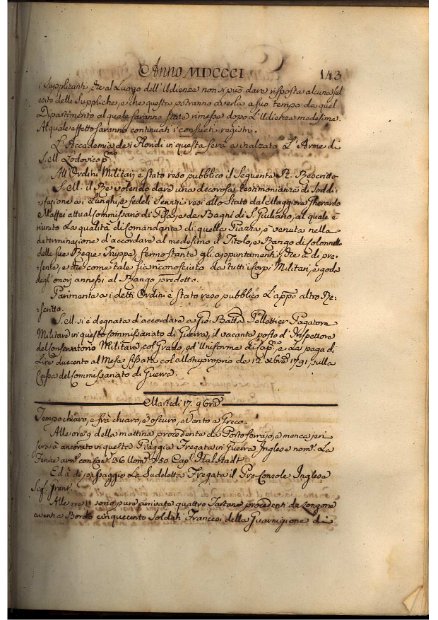 Anno MDCCCI
143
Supplicanti, che al Luogo dell'Udienza non si può dare risposta alcuna ad
esito delle Suppliche, e che questa potranno averla a suo tempo da quel
Dipartimento al quale saranno state rimesse dopo l'Udienza medesima
Al quale effetto saranno continuati i consueti registri.
L'Accademia dei Floridi in questa sera ha inalzato L'Arme di
S. M. Lodovico p.
All'Ordini Militari è stato reso pubblico il Seguente R. Rescritto
S. M. il Re volendo dare una decorosa testimonianza di Soddi-
sfazione ai lunghi, e fedeli Servizi resi allo Stato dal Maggiore Gherardo
Maffei attual commissario di Guerra de Bagni di S. Giuliano, al quale è
riunita La qualità di Comandante di quella Piazza, è venuta nella
determinazione d'accordare al medesimo il Titolo, e Rango di Colonnello
delle sue Regie Truppe, fermo stante gli appuntamenti che ha di pre-
sente, e che come tale sia riconosciuto da tutti i Corpi Militari, e goda
degl'onori annessi al Rango predetto.
Parimente a i detti Ordini è stato reso pubblico L'app. altro Re-
scritto.
S. M. si è degnata d'accordare a Gio: Batta Pellettier Pagatore
Militare in questo Commissariato di Guerra, il vacante posto d'Ispettore
del Conservatorio Militare col Grado, ed Uniforme di Cap. e La paga di
Lire duecento al Mese fissata col allo Motuproprio de 12 1791 sulla
Cassa del Commissariato di Guerra.
Martedì 17. 9bre
Tempo chiaro, e fra chiaro, e oscuro, e Vento a Greco.
Alle ore 9 della mattina procedente da Portoferrajo, e monca pri-
ancorato in questa Spiaggia Fregata in Guerra Inglese nom. La
con 36 Cap.
Ed è di passaggio La Sudetta Fregata il Pro Console Inglese
Sig. Grant
Alle ore 11 sono pure arrivate quattro Tartane procedenti da Longone
aventi a Bordo cinquecento Soldati Francesi della Guarnigione di